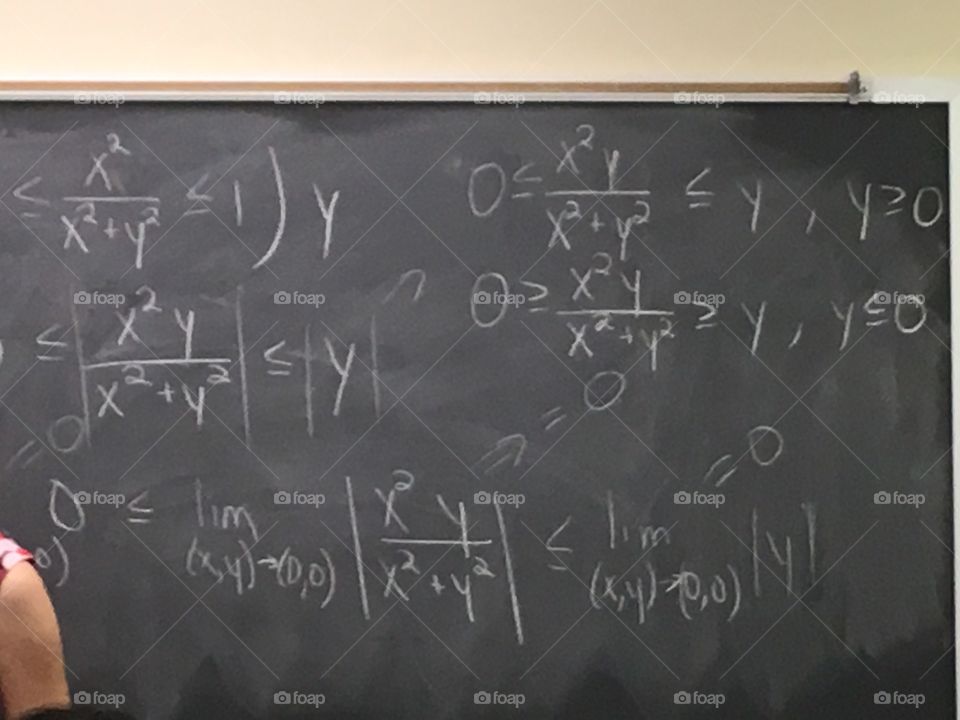 ≤ x²/(x²+y²) ≤ 1) y
0 ≤ x²y/(x²+y²) ≤ y , y ≥ 0
0 ≥ x²y/(x²+y²) ≥ y , y ≤ 0
≤ |x²y/(x²+y²)| ≤ |y|
= 0
= 0
= 0
0 ≤ lim (x,y)→(0,0) |x²y/(x²+y²)| ≤ lim (x,y)→(0,0) |y|
0)
foap foap foap foap foap
foap foap foap foap foap
foap foap foap foap foap
foap foap foap foap foap